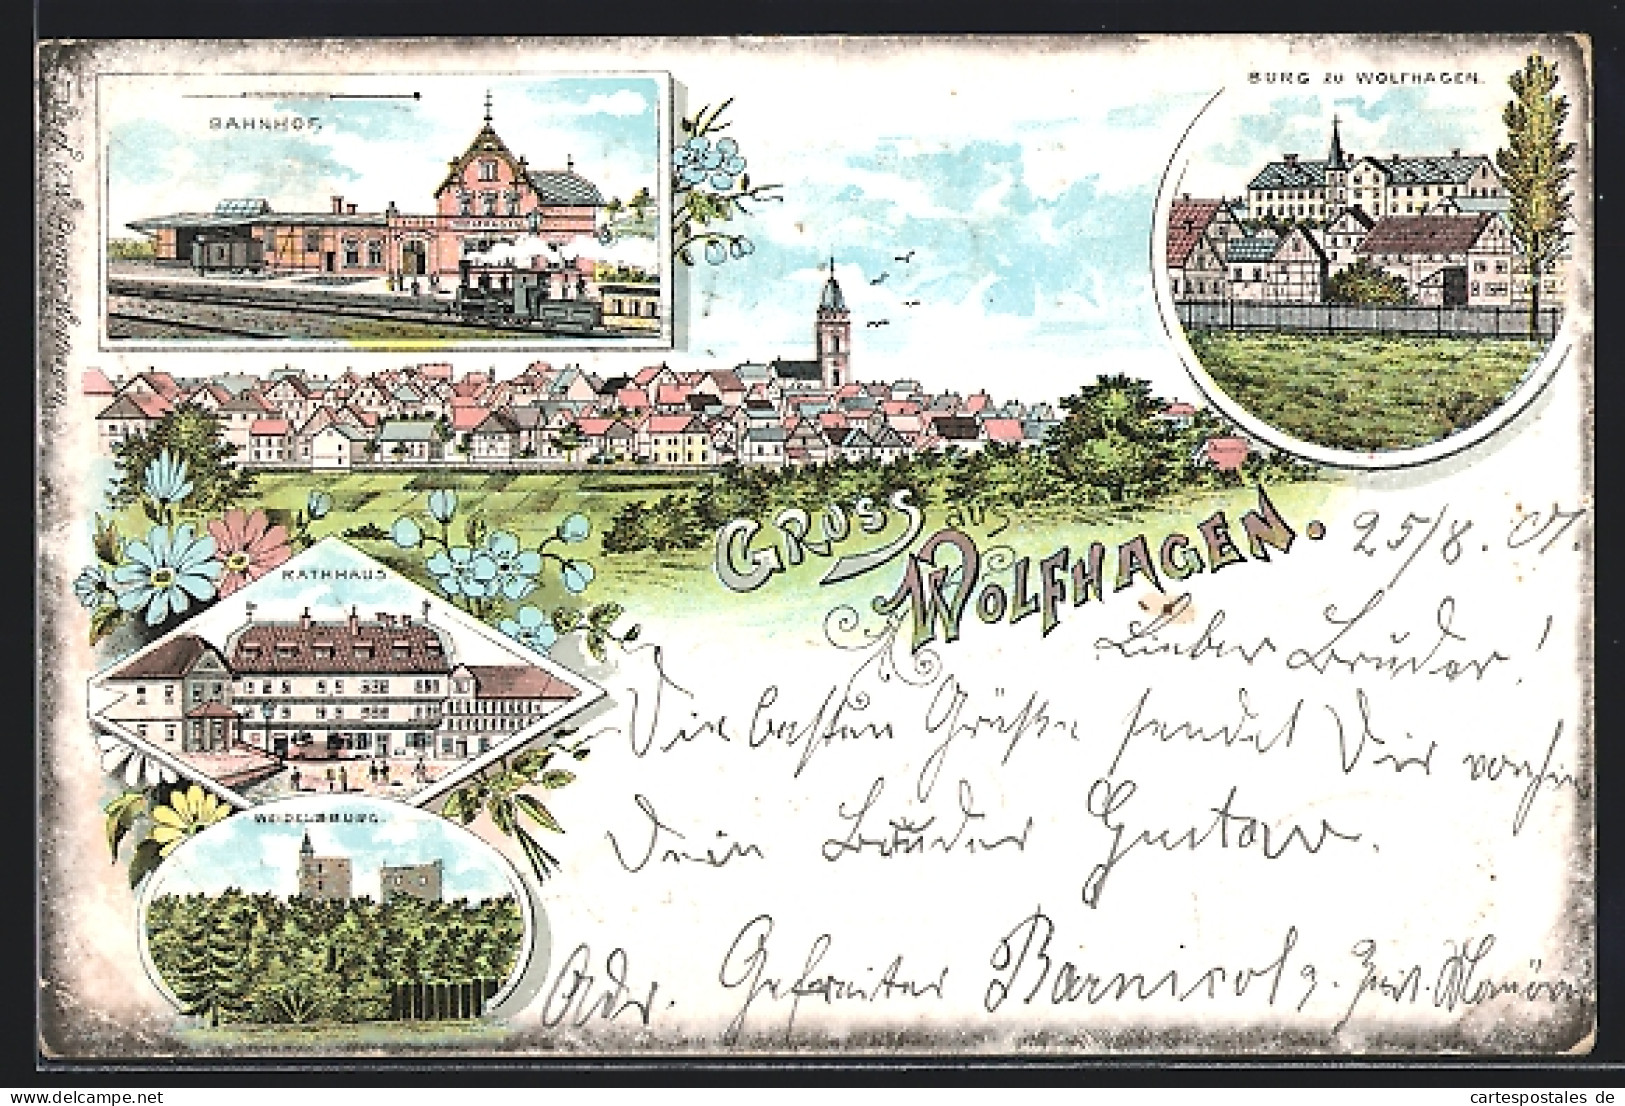 BAHNHOF.
BURG ZU WOLFHAGEN.
GRUSS
aus
WOLFHAGEN.
RATHHAUS.
WEIDELSBURG.
25/8. 07.
Lieber Bruder!
Die besten Grüße sendet Dir
Dein Bruder Gustav.
Adr. Gefreiter Barnicol
cartespostales de